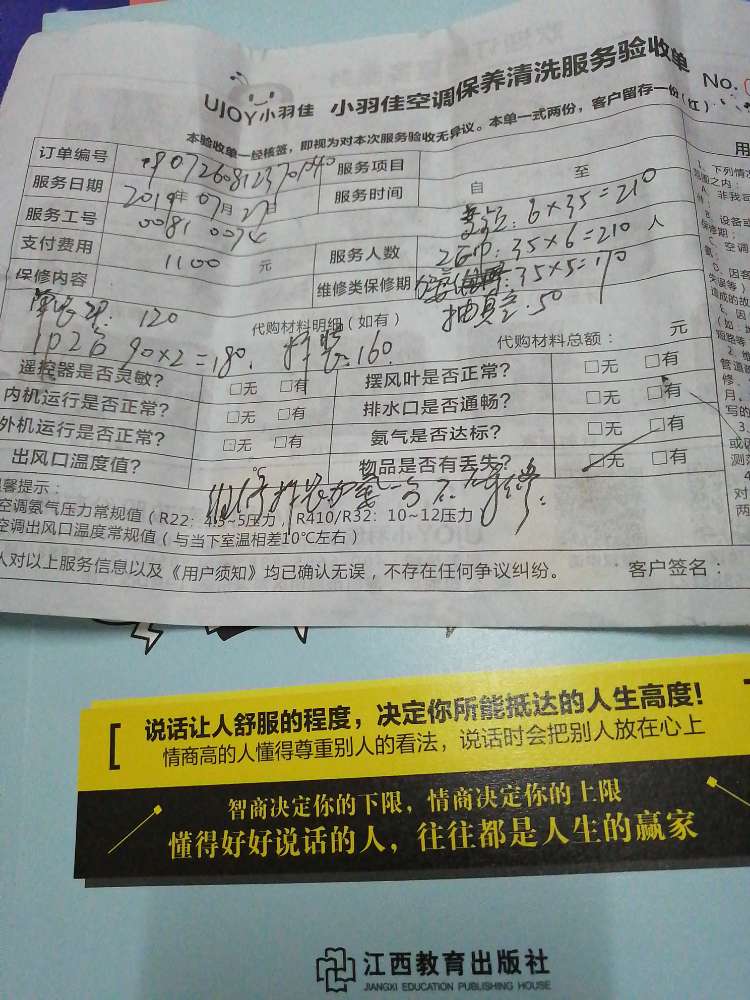 UJOY小羽佳 小羽佳空调保养清洗服务验收单 No.
本验收单一经核签，即视为对本次服务验收无异议。本单一式两份，客户留存一份（红）
订单编号 服务项目
服务日期 2019年07月27日 服务时间 自 至
服务工号 0081 0074 6×35=210
支付费用 1100 元 服务人数 35×6=210 人
保修内容 维修类保修期 35×5=170
120 代购材料明细（如有） 抽真空:50
102 90×2=180. 160. 代购材料总额： 元
遥控器是否灵敏？ □无 □有 摆风叶是否正常？ □无 □有
内机运行是否正常？ □无 □有 排水口是否通畅？ □无 □有
外机运行是否正常？ □无 □有 氨气是否达标？ □无 □有
出风口温度值？ ℃ 物品是否有丢失？ □无 □有
温馨提示：
空调氨气压力常规值（R22：4.5~5压力，R410/R32：10~12压力
空调出风口温度常规值（与当下室温相差10℃左右）
人对以上服务信息以及《用户须知》均已确认无误，不存在任何争议纠纷。 客户签名：
用
1、下列情况
范围之内：
A、非我司
B、设备或
保修期；
C、空调
D、因各
失误等）
造成的故
E、因
（如：
短路等
2、维
管道
修、
月，
写的
3、
或
测
4
对
两
[ 说话让人舒服的程度，决定你所能抵达的人生高度！
情商高的人懂得尊重别人的看法，说话时会把别人放在心上
智商决定你的下限，情商决定你的上限
懂得好好说话的人，往往都是人生的赢家
江西教育出版社
JIANGXI EDUCATION PUBLISHING HOUSE